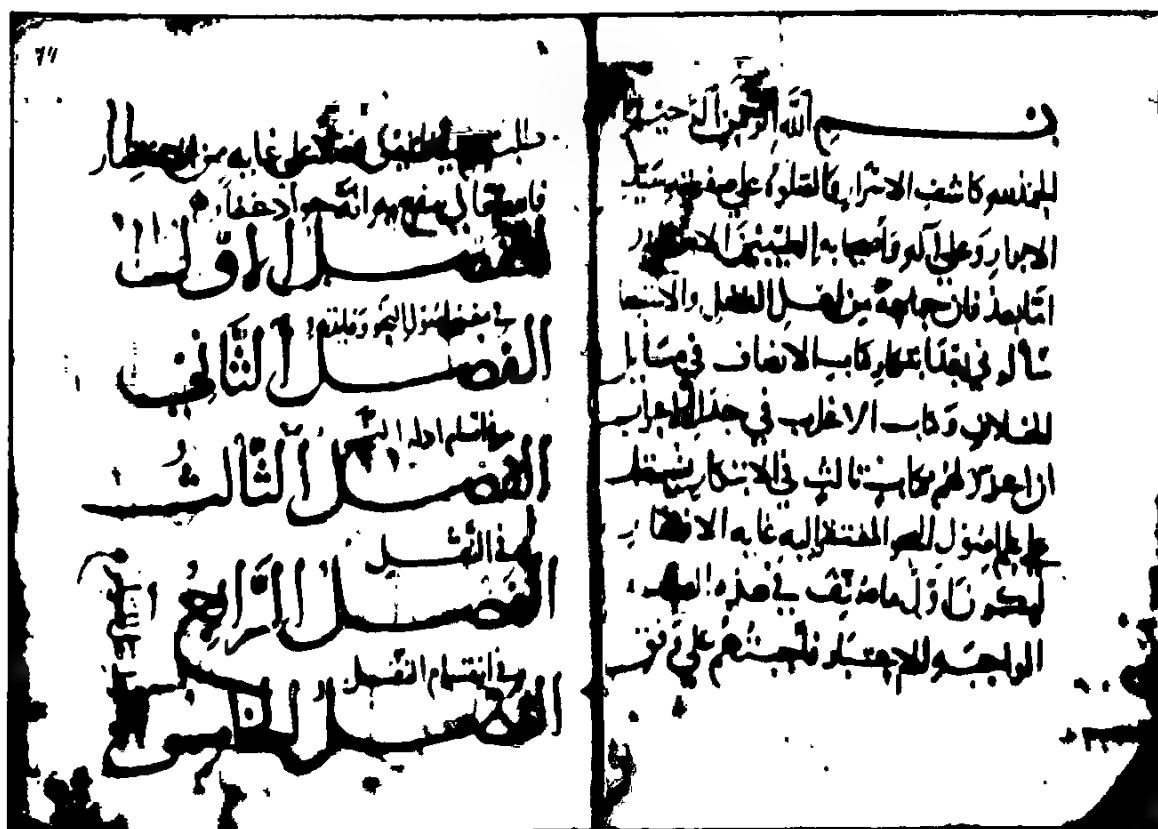 بسم الله الرحمن الرحيم
الحمد لله كاشف الاسرار والصلوة على صفوته سيد
الابرار وعلى آله وأصحابه الطيبين
اما بعد فان جماعة من اهل الفضل والانتما
سألوني بعد ابتكار كتاب الانصاف في مسايل
الخلاف وكتاب الاغراب في جدل الاعراب
ان اعزز لهم بكتاب ثالث في الابتكار يشتمل
على علم اصول النحو المفتقر اليه غاية الافتقار
ليكون اول ما صنف في هذه
الواجبه للاعتبار فأجبتهم على وفق
على غاية من الاختصار
فالله تعالى ينفع به انه جواد غفار
الفصل الاول
في معنى اصول النحو وفايدته
الفصل الثاني
في اقسام ادلة النحو
الفصل الثالث
في النقل
الفصل الرابع
في انقسام النقل
الفصل الخامس